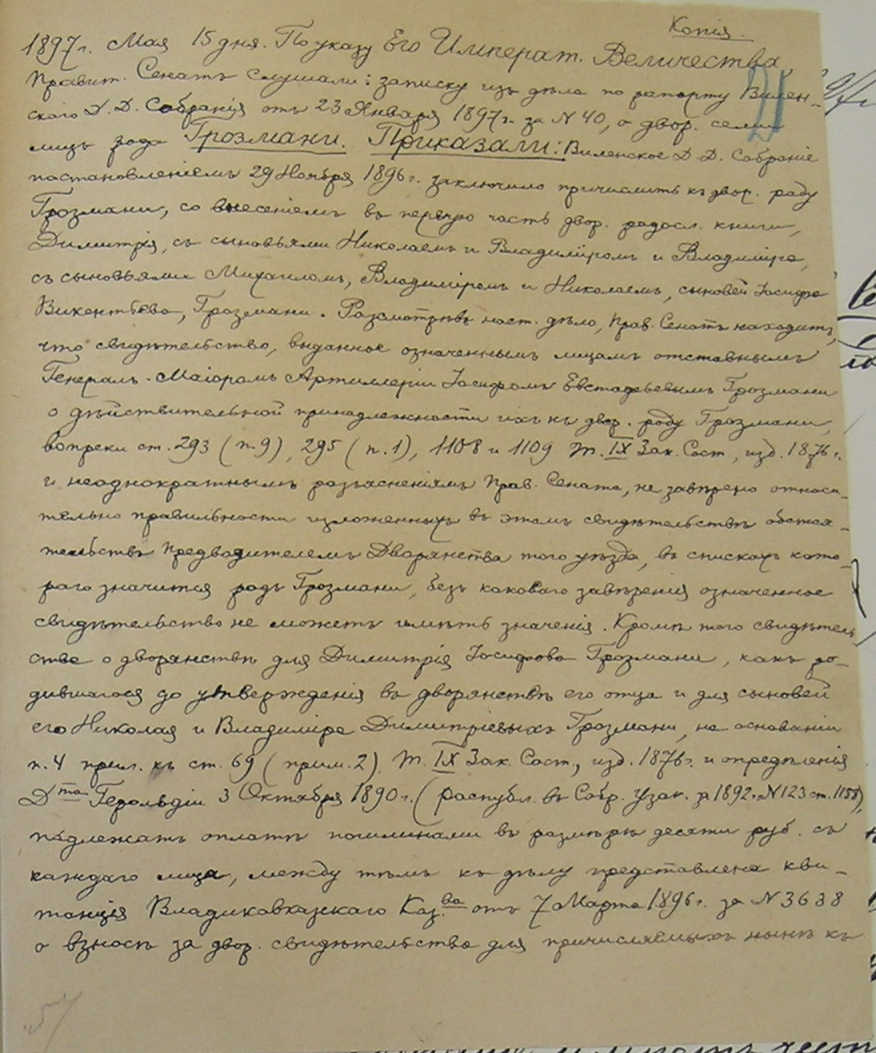 Копія.
1897 г. Мая 15 дня. По указу Его Императ. Величества
Правит. Сенатъ слушали: записку изъ дѣла по рапорту Вилен-
скаго Д. Д. Собранія отъ 23 Января 1897 г. за N 40, о двор. семи
лицъ рода Грозмани. Приказали: Виленское Д. Д. Собраніе
постановленіемъ 29 Ноября 1896 г. заключило причислить къ двор. роду
Грозмани, со внесеніемъ въ первую часть двор. родосл. книги,
Димитрія, съ сыновьями Николаемъ и Владиміромъ и Владиміра,
съ сыновьями Михаиломъ, Владиміромъ и Николаемъ, сыновей Іосифа
Викентьева, Грозмани. Разсмотрѣвъ наст. дѣло, Прав. Сенатъ находитъ,
что свидѣтельство, выданное означеннымъ лицамъ отставнымъ
Генералъ-Маіоромъ Артиллеріи Іосифомъ Евстафьевымъ Грозмани
о дѣйствительной принадлежности ихъ къ двор. роду Грозмани,
вопреки ст. 293 (п. 9), 295 (п. 1), 1108 и 1109 Т. IX Зак. Сост., изд. 1876 г.
и неоднократнымъ разъясненіямъ Прав. Сената, не завѣрено относи-
тельно правильности изложенныхъ въ этомъ свидѣтельствѣ обстоя-
тельствъ Предводителемъ Дворянства того уѣзда, въ спискахъ кото-
раго значится родъ Грозмани, безъ каковаго завѣренія означенное
свидѣтельство не можетъ имѣть значенія. Кромѣ того свидѣтель-
ства о дворянствѣ для Димитрія Іосифова Грозмани, какъ ро-
дившагося до утвержденія въ дворянствѣ его отца и для сыновей
его Николая и Владиміра Димитріевыхъ Грозмани, на основаніи
п. 4 прил. къ ст. 69 (прим. 2) Т. IX Зак. Сост., изд. 1876 г. и опредѣленія
Д-та Герольдіи 3 Октября 1890 г. (распубл. въ Собр. узак. за 1892 г. N 123 ст. 1155),
подлежатъ оплатѣ пошлинами въ размѣрѣ десяти руб. съ
каждаго лица, между тѣмъ къ дѣлу представлена кви-
танція Владикавказскаго Каз-ва отъ 7 Марта 1896 г. за N 3638
о взносѣ за двор. свидѣтельства для причисляемыхъ нынѣ къ
57